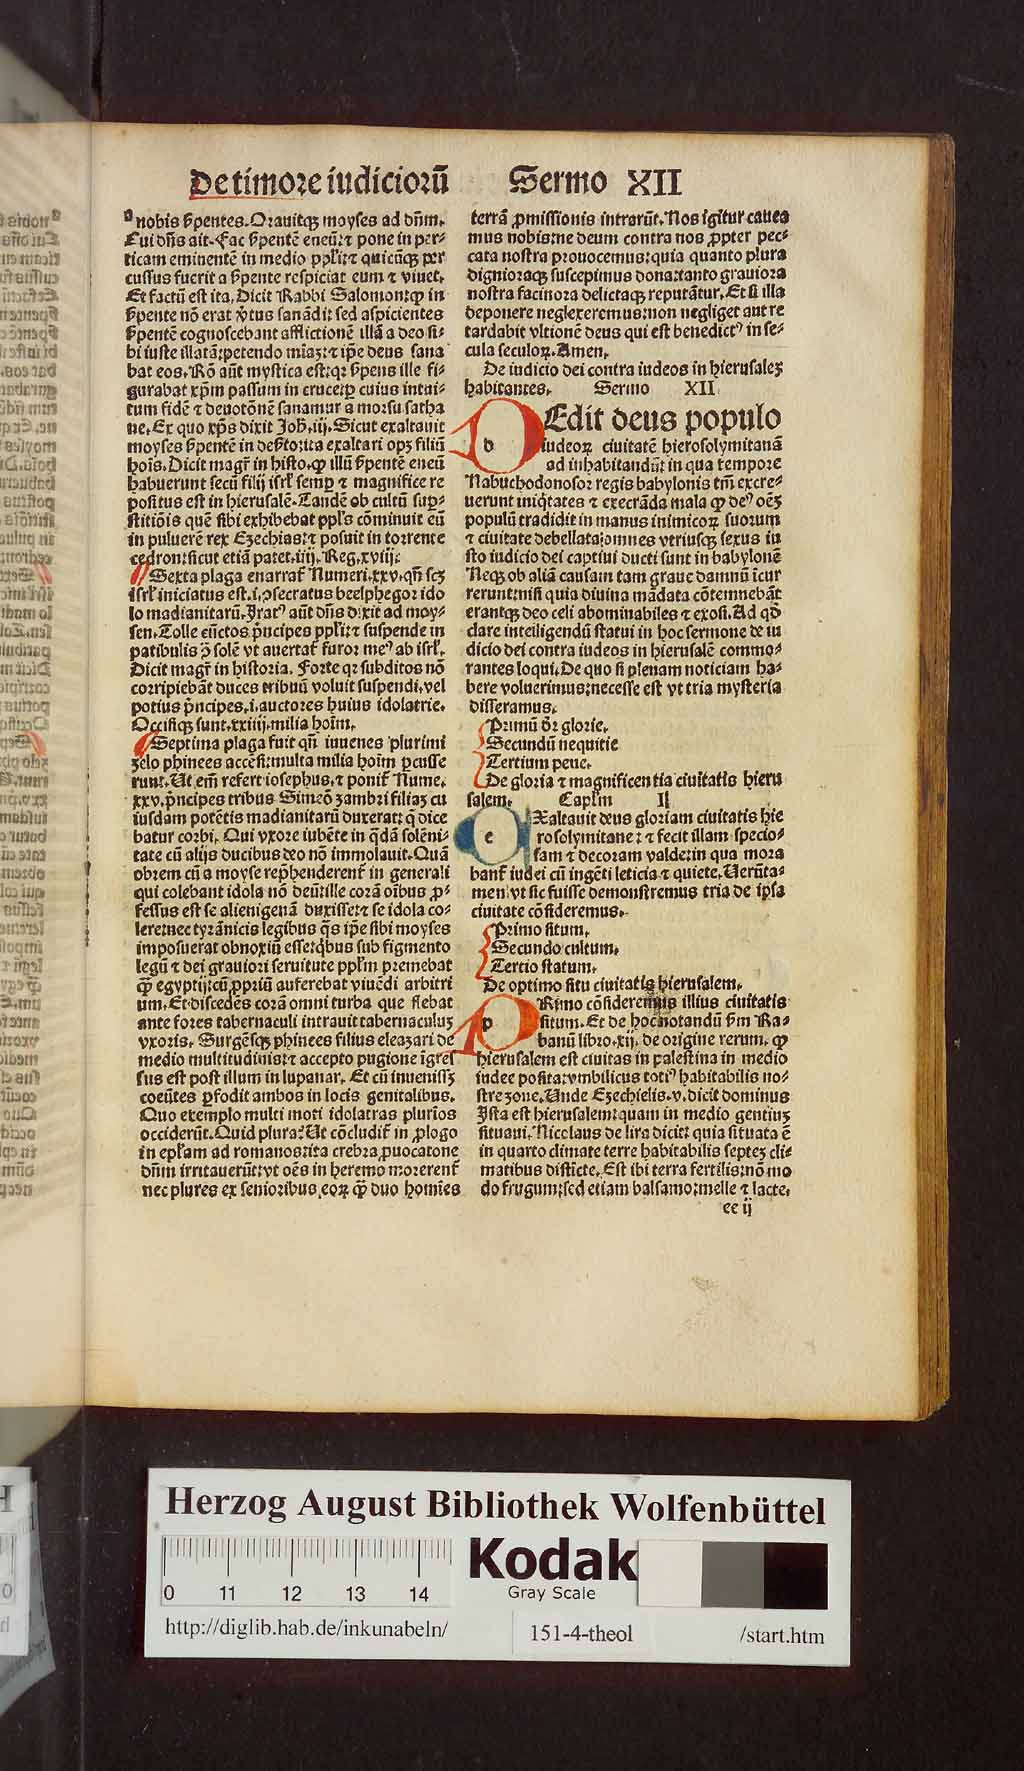 De timore iudiciorū Sermo XII
nobis ẜpentes. Orauitqꝫ moyses ad dn̄m.
Cui dn̄s ait. Fac ẜpentē eneū: ⁊ pone in per-
ticam eminentē in medio ppl̓i: ⁊ quicūqꝫ per
cussus fuerit a ẜpente respiciat eum ⁊ viuet.
Et factū est ita. Dicit Rabbi Salomon: ꝙ in
ẜpente nō erat v̓tus sanādi: sed aspicientes
ẜpentē cognoscebant afflictionē illā a deo si-
bi iuste illatā: petendo mīaꝫ: ⁊ ip̄e deus sana
bat eos. Rō aūt mystica est: qꝛ ẜpens ille fi-
gurabat xp̄m passum in cruce: ꝑ cuius intui-
tum fidē ⁊ deuotōnē sanamur a morsu satha
ne. Ex quo xp̄s dixit Joh̄. iij. Sicut exaltauit
moyses ẜpentē in deẜto: ita exaltari opꝫ filiū
hoīs. Dicit magr̄ in histo. ꝙ illū ẜpentē eneū
habuerunt secū filij isrl̓ semꝑ ⁊ magnifice re
positus est in hierusalē. Tandē ob cultū suꝑ-
stitiōis quē sibi exhibebat ppl̓s cōminuit eū
in puluerē rex Ezechias: ⁊ posuit in torrente
cedron: sicut etiā patet. iiij. Reg. xviij.
Sexta plaga enarrat̄ Numeri. xxv. qn̄ scꝫ
isrl̓ iniciatus est. i. ꝯsecratus beelphegor ido
lo madianitarū. Jratꝰ aūt dn̄s dixit ad moy-
sen. Tolle cūctos p̄ncipes ppl̓i: ⁊ suspende in
patibulis ꝯ̄ solē vt auertat̄ furor meꝰ ab isrl̓.
Dicit magr̄ in historia. Forte qꝛ subditos nō
corripiebāt duces tribuū voluit suspendi. vel
potius p̄ncipes. i. auctores huius idolatrie.
Occisiqꝫ sunt. xxiiij. milia hoīm.
Septima plaga fuit qn̄ iuuenes plurimi
zelo phinees accēsi: multa milia hoīm ꝑcusse
runt. Ut em̄ refert iosephus, ⁊ ponit̄ Nume.
xxv. p̄ncipes tribus Simeō zambri filiaꝫ cu
iusdam potētis madianitarū duxerat: q̄ dice
batur corbi. Qui vxore iubēte in q̄dā solēni-
tate cū alijs ducibus deo nō immolauit. Quā
obrem cū a moyse rep̄henderent̄ in generali
qui colebant idola nō deūt: ille corā oībus ꝓ-
fessus est se alienigenā duxisse: ⁊ se idola co-
lere: nec tyrānicis legibus q̄s ip̄e sibi moyses
imposuerat obnoxiū esse: q̇bus sub figmento
legū ⁊ dei grauiori seruitute ppl̓m premebat
ꝙ̄ egyptij: cū ꝓpriū auferebat viuēdi arbitri
um. Et discedēs corā omni turba que flebat
ante fores tabernaculi intrauit tabernaculuꝫ
vxoris. Surgēsqꝫ phinees filius eleazari de
medio multitudinis: ⁊ accepto pugione īgreſ
sus est post illum in lupanar. Et cū inuenissꝫ
coeūtes ꝑfodit ambos in locis genitalibus.
Quo exemplo multi moti idolatras plurios
occiderūt. Quid plura? Ut cōcludit̄ in ꝓlogo
in epl̓am ad romanos: ita crebra ꝓuocatone
dn̄m irritauerūt: vt oēs in heremo morerent̄
nec plures ex senioribus eoꝝ ꝙ̄ duo homīes
terrā ꝓmissionis intrarūt. Nos igitur cauea
mus nobis: ne deum contra nos ꝓpter pec-
cata nostra prouocemus: quia quanto plura
dignioraqꝫ suscepimus dona: tanto grauiora
nostra facinora delictaqꝫ reputātur. Et si illa
deponere neglexeremus: non negliget aut re
tardabit vltionē deus qui est benedictꝰ in se-
cula seculoꝝ. Amen.
De iudicio dei contra iudeos in hierusaleꝫ
habitantes. Sermo XII
dEdit deus populo
iudeoꝝ ciuitatē hierosolymitanā
ad inhabitandū: in qua tempore
Nabuchodonosor regis babylonis tm̄ excre-
uerunt iniq̇tates ⁊ execrāda mala ꝙ deꝰ oēꝫ
populū tradidit in manus inimicoꝝ suorum
⁊ ciuitate debellata: omnes vtriusqꝫ sexus iu
sto iudicio dei captiui ducti sunt in babylonē
Neqꝫ ob aliā causam tam graue damnū īcur
rerunt: nisi quia diuina mādata cōtemnebāt
erantqꝫ deo celi abominabiles ⁊ exosi. Ad qḋ
clare intelligendū statui in hoc sermone de iu
dicio dei contra iudeos in hierusalē commo-
rantes loqui. De quo si plenam noticiam ha-
bere voluerimus: necesse est vt tria mysteria
disseramus.
Primū dr̄ glorie.
Secundū nequitie
Tertium pene.
De gloria ⁊ magnificentia ciuitatis hieru
salem. Capl̓m I
eXaltauit deus gloriam ciuitatis hie
rosolymitane: ⁊ fecit illam specio-
sam ⁊ decoram valde: in qua mora
bant̄ iudei cū ingēti leticia ⁊ quiete. Uerūta-
men vt sic fuisse demonstremus tria de ipsa
ciuitate cōsideremus.
Primo situm.
Secundo cultum.
Tertio statum.
De optimo situ ciuitatis hierusalem.
pRimo cōsideremus illius ciuitatis
situm. Et de hoc notandū ẜm Ra-
banū libro. xij. de origine rerum. ꝙ
hierusalem est ciuitas in palestina in medio
iudee posita: vmbilicus totiꝰ habitabilis no-
stre zone. Unde Ezechielis. v. dicit dominus
Jsta est hierusalem: quam in medio gentiuꝫ
situaui. Nicolaus de lira dicit: quia situata ē
in quarto climate terre habitabilis septeꝫ cli-
matibus distīcte. Est ibi terra fertilis: nō mo
do frugum: sed etiam balsamo: melle ⁊ lacte.
ee ij
Herzog August Bibliothek Wolfenbüttel
0 11 12 13 14
Kodak
Gray Scale
http://diglib.hab.de/inkunabeln/ 151-4-theol /start.htm